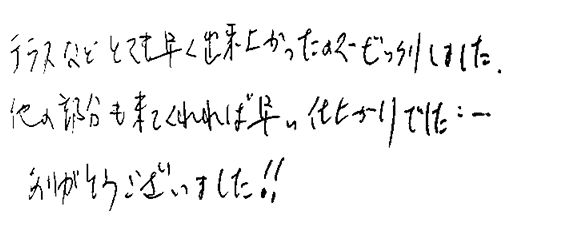 テラスなどとても早く出来上がったのでびっくりしました.
他の部分も来てくれれば早い仕上がりでした…
ありがとうございました!!